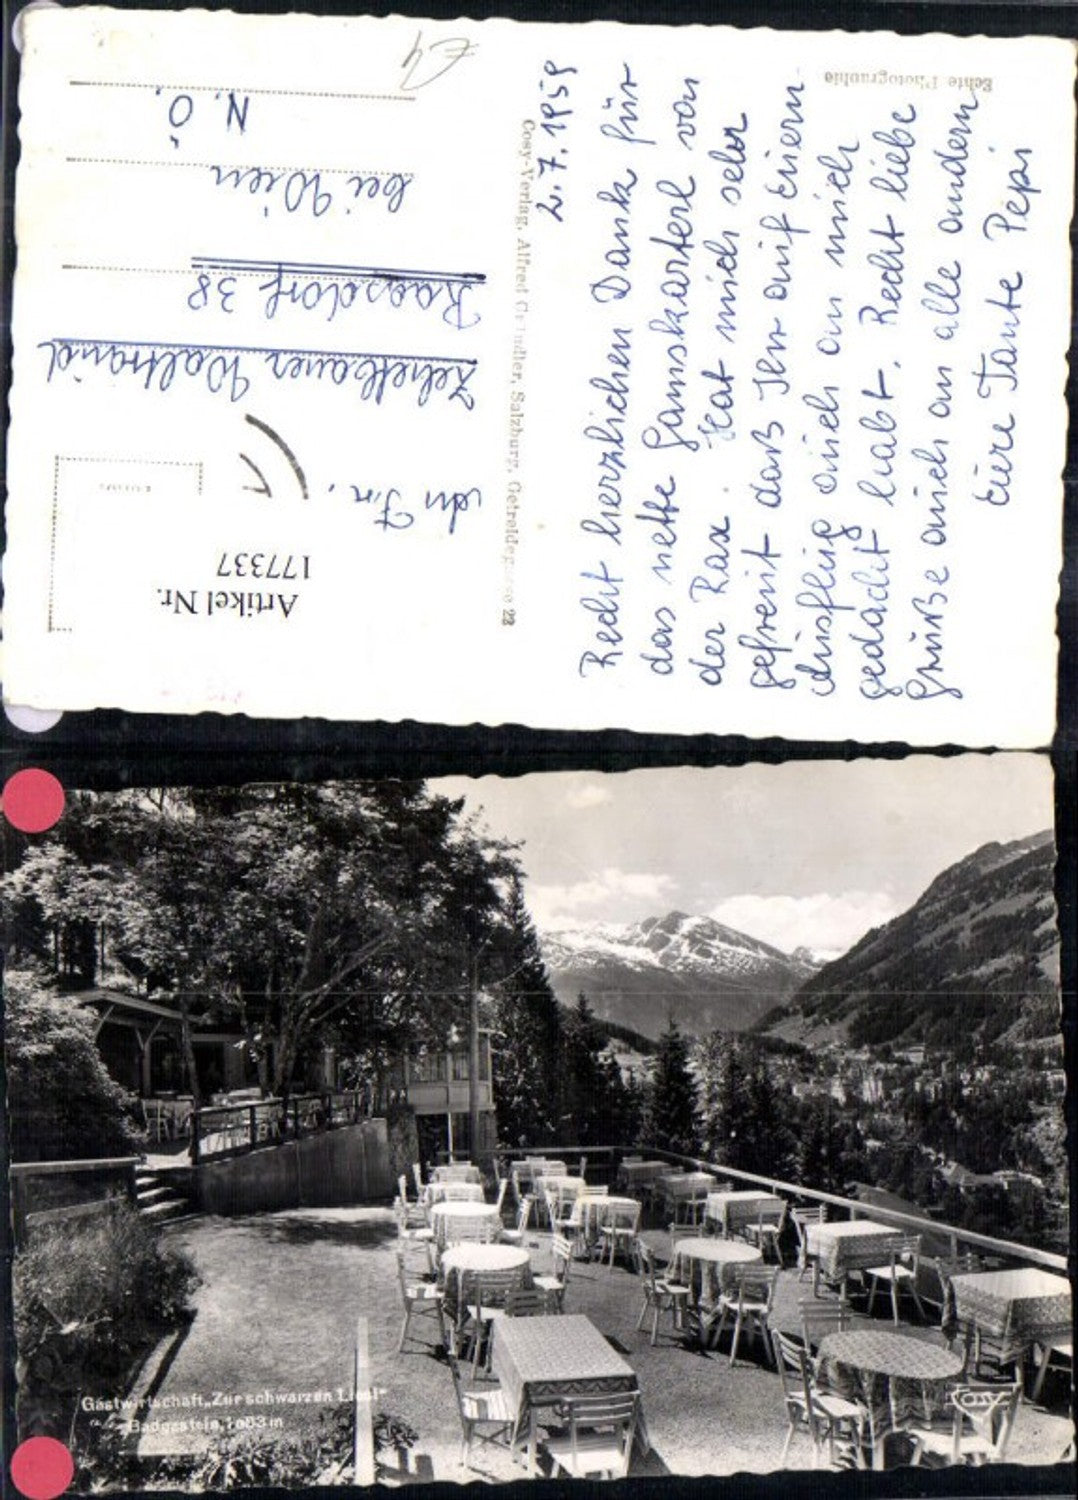 Echte Photographie
2.7.1959
Recht herzlichen Dank für
das nette Gamskarterl von
der Rax. Hat mich sehr
gefreut daß Ihr auf Euern
Ausflug auch an mich
gedacht habt. Recht liebe
Grüße auch an alle andern
Eure Tante Pepi
Cosy-Verlag, Alfred Gründler, Salzburg, Getreidegasse 22
Artikel Nr.
177337
An Frl.
Waltraud
Raasdorf 38
bei Wien
N.Ö.
E4
Gastwirtschaft „Zur schwarzen Liesl"
Badgastein, 1083 m
Cosy